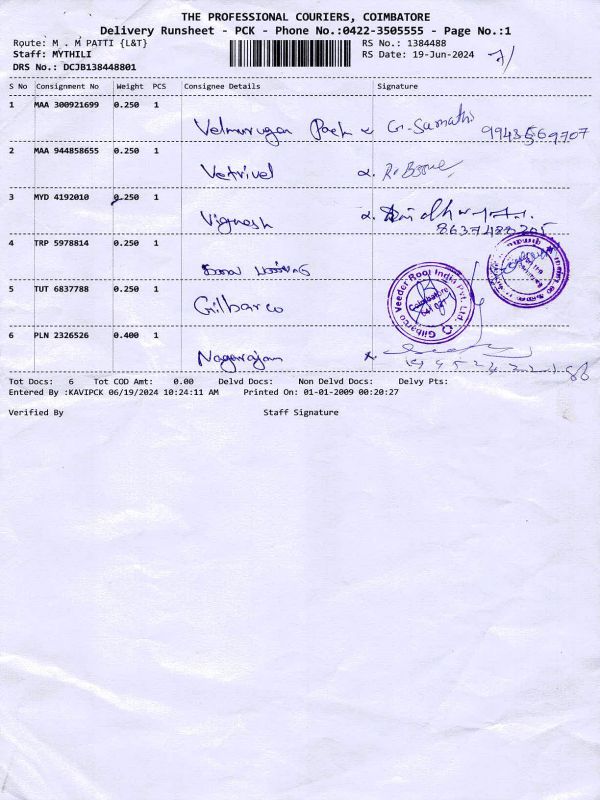 THE PROFESSIONAL COURIERS, COIMBATORE
Delivery Runsheet - PCK - Phone No.:0422-3505555 - Page No.:1
Route: M . M PATTI {L&T} RS No.: 1384488
Staff: MYTHILI RS Date: 19-Jun-2024
DRS No.: DCJB138448801
S No Consignment No Weight PCS Consignee Details Signature
1 MAA 300921699 0.250 1 Velmurugan G. Sumathi 9943569707
2 MAA 944858655 0.250 1 Vetrivel
3 MYD 4192010 0.250 1 Vignesh
8637480205
4 TRP 5978814 0.250 1
5 TUT 6837788 0.250 1 Gilbarco
Gilbarco Veeder Root India Pvt. Ltd.
Coimbatore
641 021
6 PLN 2326526 0.400 1 Nagarajan
Tot Docs: 6 Tot COD Amt: 0.00 Delvd Docs: Non Delvd Docs: Delvy Pts:
Entered By :KAVIPCK 06/19/2024 10:24:11 AM Printed On: 01-01-2009 00:20:27
Verified By Staff Signature